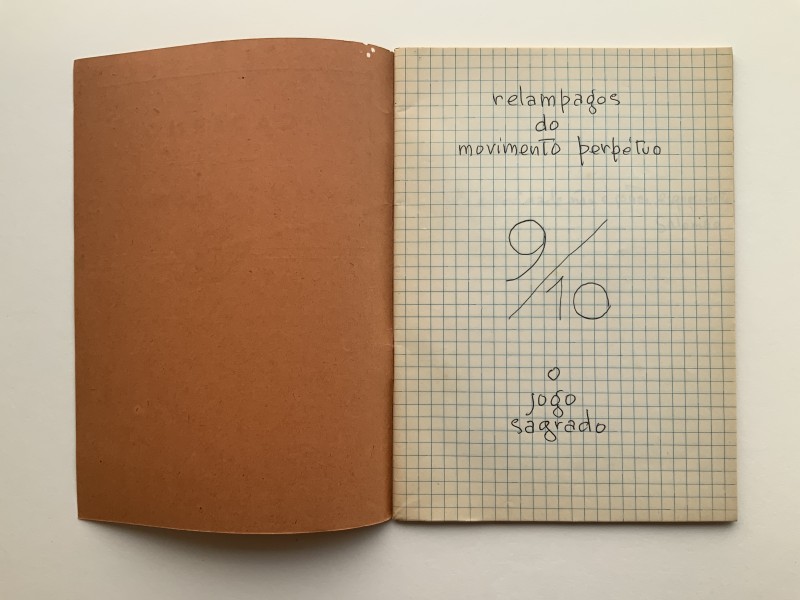 relampagos
do
movimento perpétuo
9/10
o
jogo
sagrado